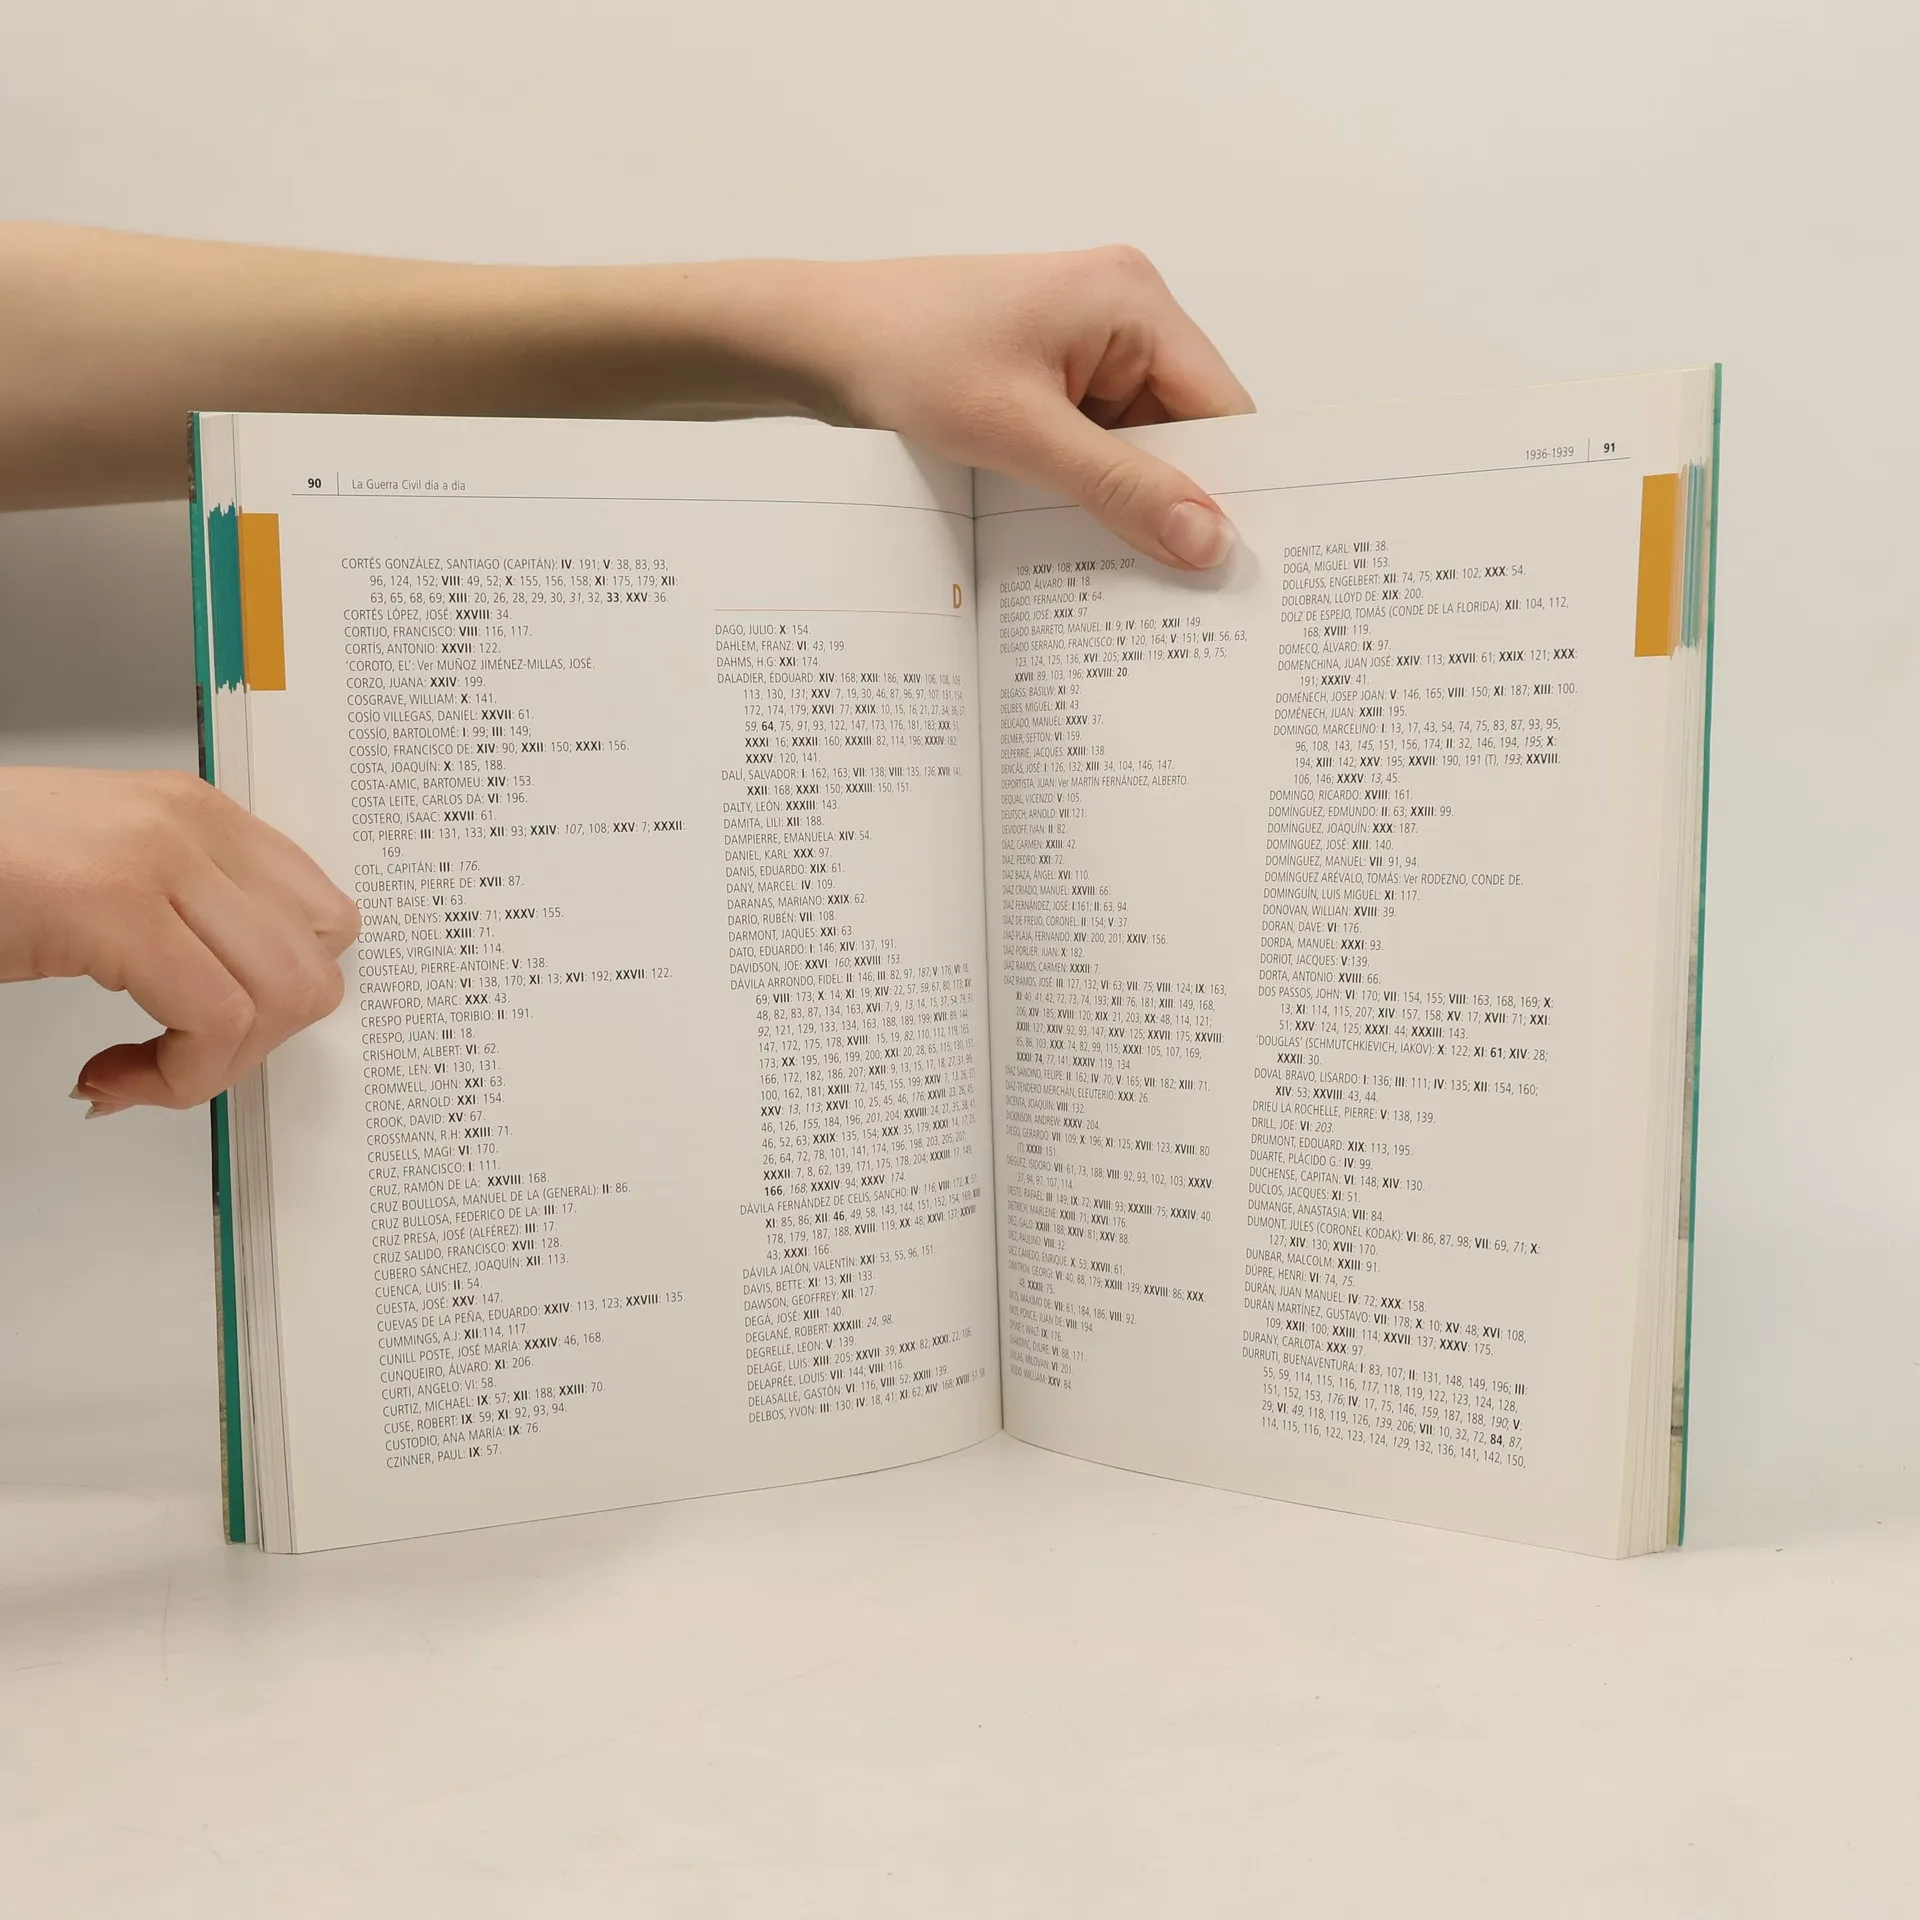 90 La Guerra Civil día a día
CORTÉS GONZÁLEZ, SANTIAGO (CAPITÁN): IV: 191; V: 38, 83, 93,
96, 124, 152; VIII: 49, 52; X: 155, 156, 158; XI: 175, 179; XII:
63, 65, 68, 69; XIII: 20, 26, 28, 29, 30, 31, 32, 33; XXV: 36.
CORTÉS LÓPEZ, JOSÉ: XXVIII: 34.
CORTIJO, FRANCISCO: VIII: 116, 117.
CORTÍS, ANTONIO: XXVII: 122.
'COROTO, EL': Ver MUÑOZ JIMÉNEZ-MILLAS, JOSÉ.
CORZO, JUANA: XXIV: 199.
COSGRAVE, WILLIAM: X: 141.
COSÍO VILLEGAS, DANIEL: XXVII: 61.
COSSÍO, BARTOLOMÉ: I: 99; III: 149;
COSSÍO, FRANCISCO DE: XIV: 90; XXII: 150; XXXI: 156.
COSTA, JOAQUÍN: X: 185, 188.
COSTA-AMIC, BARTOMEU: XIV: 153.
COSTA LEITE, CARLOS DA: VI: 196.
COSTERO, ISAAC: XXVII: 61.
COT, PIERRE: III: 131, 133; XII: 93; XXIV: 107, 108; XXV: 7; XXXII:
169.
COTL, CAPITÁN: III: 176.
COUBERTIN, PIERRE DE: XVII: 87.
COUNT BAISE: VI: 63.
COWAN, DENYS: XXXIV: 71; XXXV: 155.
COWARD, NOEL: XXIII: 71.
COWLES, VIRGINIA: XII: 114.
COUSTEAU, PIERRE-ANTOINE: V: 138.
CRAWFORD, JOAN: VI: 138, 170; XI: 13; XVI: 192; XXVII: 122.
CRAWFORD, MARC: XXX: 43.
CRESPO PUERTA, TORIBIO: II: 191.
CRESPO, JUAN: III: 18.
CRISHOLM, ALBERT: VI: 62.
CROME, LEN: VI: 130, 131.
CROMWELL, JOHN: XXI: 63.
CRONE, ARNOLD: XXI: 154.
CROOK, DAVID: XV: 67.
CROSSMANN, R.H: XXIII: 71.
CRUSELLS, MAGI: VI: 170.
CRUZ, FRANCISCO: I: 111.
CRUZ, RAMÓN DE LA: XXVIII: 168.
CRUZ BOULLOSA, MANUEL DE LA (GENERAL): II: 86.
CRUZ BULLOSA, FEDERICO DE LA: III: 17.
CRUZ PRESA, JOSÉ (ALFÉREZ): III: 17.
CRUZ SALIDO, FRANCISCO: XVII: 128.
CUBERO SÁNCHEZ, JOAQUÍN: XII: 113.
CUENCA, LUIS: II: 54.
CUESTA, JOSÉ: XXV: 147.
CUEVAS DE LA PEÑA, EDUARDO: XXIV: 113, 123; XXVIII: 135.
CUMMINGS, A.J: XII:114, 117.
CUNILL POSTE, JOSÉ MARÍA: XXXIV: 46, 168.
CUNQUEIRO, ÁLVARO: XI: 206.
CURTI, ANGELO: VI: 58.
CURTIZ, MICHAEL: IX: 57; XII: 188; XXIII: 70.
CUSE, ROBERT: IX: 59; XI: 92, 93, 94.
CUSTODIO, ANA MARÍA: IX: 76.
CZINNER, PAUL: IX: 57.
D
DAGO, JULIO: X: 154.
DAHLEM, FRANZ: VI: 43, 199.
DAHMS, H.G: XXI: 174.
DALADIER, ÉDOUARD: XIV: 168; XXII: 186, XXIV: 106, 108, 109,
113, 130, 131; XXV: 7, 19, 30, 46, 87, 96, 97, 107, 131, 154,
172, 174, 179; XXVI: 77; XXIX: 10, 15, 16, 21, 27, 34,
59, 64, 75, 91, 93, 122, 147, 173, 176, 181, 183; XXX: 51,
XXXI: 16; XXXII: 160; XXXIII: 82, 114, 196; XXXIV: 182
XXXV: 120, 141.
DALÍ, SALVADOR: I: 162, 163; VII: 138; VIII: 135, 136; XVII: 141,
XXII: 168; XXXI: 150; XXXIII: 150, 151.
DALTY, LEÓN: XXXIII: 143.
DAMITA, LILI: XII: 188.
DAMPIERRE, EMANUELA: XIV: 54.
DANIEL, KARL: XXX: 97.
DANIS, EDUARDO: XIX: 61.
DANY, MARCEL: IV: 109.
DARANAS, MARIANO: XXIX: 62.
DARÍO, RUBÉN: VII: 108.
DARMONT, JAQUES: XXI: 63.
DATO, EDUARDO: I: 146; XIV: 137, 191.
DAVIDSON, JOE: XXVI: 160; XXVIII: 153.
DÁVILA ARRONDO, FIDEL: II: 146; III: 82, 97, 187; V: 176; VI: 18,
69; VIII: 173; X: 14; XI: 19; XIV: 22, 57, 59, 67, 80, 173; XV:
48, 82, 83, 87, 134, 163, XVI: 7, 9, 13, 14, 15, 37, 54, 79, 91
92, 121, 129, 133, 134, 163, 188, 189, 199; XVII: 89, 144,
147, 172, 175, 178; XVIII: 15, 19, 82, 110, 112, 119, 163,
173; XX: 195, 196, 199, 200; XXI: 20, 28, 65, 115, 130, 151
166, 172, 182, 186, 207; XXII: 9, 13, 15, 17, 18, 27, 31, 99,
100, 162, 181; XXIII: 72, 145, 155, 199; XXIV: 7, 13, 26, 37,
XXV: 13, 113; XXVI: 10, 25, 45, 46, 176; XXVII: 23, 26, 45,
46, 126, 155, 184, 196, 201, 204; XXVIII: 24, 27, 35, 38, 41,
46, 52, 63; XXIX: 135, 154; XXX: 35, 179; XXXI: 14, 17, 25
26, 64, 72, 78, 101, 141, 174, 196, 198, 203, 205, 207;
XXXII: 7, 8, 62, 139, 171, 175, 178, 204; XXXIII: 17, 149,
166, 168; XXXIV: 94; XXXV: 174.
DÁVILA FERNÁNDEZ DE CELIS, SANCHO: IV: 116, VIII: 172; X: 57;
XI: 85, 86; XII: 46, 49, 58, 143, 144, 151, 152, 154, 169; XIII
178, 179, 187, 188, XVIII: 119; XX: 48; XXVI: 137; XXVIII:
43; XXXI: 166.
DÁVILA JALÓN, VALENTÍN: XXI: 53, 55, 96, 151.
DAVIS, BETTE: XI: 13; XII: 133.
DAWSON, GEOFFREY: XII: 127.
DEGÁ, JOSÉ: XIII: 140.
DEGLANÉ, ROBERT: XXXIII: 24, 98.
DEGRELLE, LEON: V: 139.
DELAGE, LUIS: XIII: 205; XXVII: 39; XXX: 82; XXXI: 22, 106.
DELAPRÉE, LOUIS: VII: 144; VIII: 116.
DELASALLE, GASTÓN: VI: 116; VIII: 52; XXIII: 139.
DELBOS, YVON: III: 130; IV: 18, 41; XI: 62; XIV: 168; XVIII: 57, 58
1936-1939 91
109, XXIV: 108; XXIX: 205, 207.
DELGADO, ÁLVARO: III: 18.
DELGADO, FERNANDO: IX: 64.
DELGADO, JOSÉ: XXIX: 97.
DELGADO BARRETO, MANUEL: II: 9; IV: 160; XXII: 149.
DELGADO SERRANO, FRANCISCO: IV: 120, 164; V: 151; VII: 56, 63,
123, 124, 125, 136, XVI: 205; XXIII: 119; XXVI: 8, 9, 75;
XXVII: 89, 103, 196; XXVIII: 20.
DELGASS, BASILW: XI: 92.
DELIBES, MIGUEL: XII: 43.
DELICADO, MANUEL: XXXV: 37.
DELMER, SEFTON: VI: 159.
DELPERRIE, JACQUES: XXIII: 138.
DENCÁS, JOSÉ: I: 126, 132; XIII: 34, 104, 146, 147.
DEPORTISTA, JUAN: Ver MARTÍN FERNÁNDEZ, ALBERTO.
DEQUAL, VICENZO: V: 105.
DEUTSCH, ARNOLD: VII:121.
DEVIDOFF, IVAN: II: 82.
DÍAZ, CARMEN: XXIII: 42.
DÍAZ, PEDRO: XXI: 72.
DÍAZ BAZA, ÁNGEL: XVI: 110.
DÍAZ CRIADO, MANUEL: XXVIII: 66.
DÍAZ FERNÁNDEZ, JOSÉ: I:161; II: 63, 94
DÍAZ DE FREIJO, CORONEL: II: 154; V: 37.
DÍAZ-PLAJA, FERNANDO: XIV: 200, 201; XXIV: 156.
DÍAZ PORLIER, JUAN: X: 182.
DÍAZ RAMOS, CARMEN: XXXII: 7.
DÍAZ RAMOS, JOSÉ: III: 127, 132; VI: 63; VII: 75; VIII: 124; IX: 163,
XI: 40, 41, 42, 72, 73, 74, 193; XII: 76, 181; XIII: 149, 168,
206, XIV: 185; XVIII: 120; XIX: 21, 203; XX: 48, 114, 121;
XXIII: 127; XXIV: 92, 93, 147; XXV: 125; XXVII: 175; XXVIII:
85, 86, 103; XXX: 74, 82, 99, 115; XXXI: 105, 107, 169;
XXXII: 74, 77, 141; XXXIV: 119, 134.
DÍAZ SANDINO, FELIPE: II: 162; IV: 70; V: 165; VII: 182; XIII: 71.
DÍAZ-TENDERO MERCHÁN, ELEUTERIO: XXX: 26.
DICENTA, JOAQUÍN: VIII: 132.
DICKINSON, ANDREW: XXXV: 204.
DIEGO, GERARDO: VII: 109; X: 196; XI: 125; XVII: 123; XVIII: 80
(T); XXXII: 151.
DIÉGUEZ, ISIDORO: VII: 61, 73, 188; VIII: 92, 93, 102, 103; XXXV:
37, 94, 97, 107, 114.
DIESTE, RAFAEL: III: 149; IX: 72; XVIII: 93; XXXIII: 75; XXXIV: 40.
DIETRICH, MARLENE: XXIII: 71; XXVI: 176.
DIEZ, GALO: XXIII: 188; XXIV: 81; XXV: 88.
DIEZ, PAULINO: VIII: 32.
DIEZ CANEDO, ENRIQUE: X: 53; XXVII: 61.
DIMITROV, GEORGI: VI: 40, 88, 179; XXIII: 139; XXVIII: 86; XXX:
48; XXXII: 75.
DIOS, MÁXIMO DE: VII: 61, 184, 186; VIII: 92.
DIOS PONCE, JUAN DE: VIII: 194.
DISNEY, WALT: IX: 176.
DJAKOVIC, DJURE: VI: 88, 171.
DJILAS, MILOVAN: VI: 201.
DODD, WILLIAM: XXV: 84.
DOENITZ, KARL: VIII: 38.
DOGA, MIGUEL: VII: 153.
DOLLFUSS, ENGELBERT: XII: 74, 75; XXII: 102; XXX: 54.
DOLOBRAN, LLOYD DE: XIX: 200.
DOLZ DE ESPEJO, TOMÁS (CONDE DE LA FLORIDA): XII: 104, 112,
168; XVIII: 119.
DOMECQ, ÁLVARO: IX: 97.
DOMENCHINA, JUAN JOSÉ: XXIV: 113; XXVII: 61; XXIX: 121; XXX:
191; XXXIV: 41.
DOMÉNECH, JOSEP JOAN: V: 146, 165; VIII: 150; XI: 187; XIII: 100.
DOMÉNECH, JUAN: XXIII: 195.
DOMINGO, MARCELINO: I: 13, 17, 43, 54, 74, 75, 83, 87, 93, 95,
96, 108, 143, 145, 151, 156, 174; II: 32, 146, 194, 195; X:
194; XIII: 142; XXV: 195; XXVII: 190, 191 (T), 193; XXVIII:
106, 146; XXXV: 13, 45.
DOMINGO, RICARDO: XVIII: 161.
DOMÍNGUEZ, EDMUNDO: II: 63; XXIII: 99.
DOMÍNGUEZ, JOAQUÍN: XXX: 187.
DOMÍNGUEZ, JOSÉ: XIII: 140.
DOMÍNGUEZ, MANUEL: VII: 91, 94.
DOMÍNGUEZ ARÉVALO, TOMÁS: Ver RODEZNO, CONDE DE.
DOMINGUÍN, LUIS MIGUEL: XI: 117.
DONOVAN, WILLIAN: XVIII: 39.
DORAN, DAVE: VI: 176.
DORDA, MANUEL: XXXI: 93.
DORIOT, JACQUES: V:139.
DORTA, ANTONIO: XVIII: 66.
DOS PASSOS, JOHN: VI: 170; VII: 154, 155; VIII: 163, 168, 169; X:
13; XI: 114, 115, 207; XIV: 157, 158; XV: 17; XVII: 71; XXI:
51; XXV: 124, 125; XXXI: 44; XXXIII: 143.
'DOUGLAS' (SCHMUTCHKIEVICH, IAKOV): X: 122; XI: 61; XIV: 28;
XXXII: 30.
DOVAL BRAVO, LISARDO: I: 136; III: 111; IV: 135; XII: 154, 160;
XIV: 53; XXVIII: 43, 44.
DRIEU LA ROCHELLE, PIERRE: V: 138, 139.
DRILL, JOE: VI: 203.
DRUMONT, EDOUARD: XIX: 113, 195.
DUARTE, PLÁCIDO G.: IV: 99.
DUCHENSE, CAPITAN: VI: 148; XIV: 130.
DUCLOS, JACQUES: XI: 51.
DUMANGE, ANASTASIA: VII: 84.
DUMONT, JULES (CORONEL KODAK): VI: 86, 87, 98; VII: 69, 71; X:
127; XIV: 130; XVII: 170.
DUNBAR, MALCOLM: XXIII: 91.
DÚPRE, HENRI: VI: 74, 75.
DURÁN, JUAN MANUEL: IV: 72; XXX: 158.
DURÁN MARTÍNEZ, GUSTAVO: VII: 178; X: 10; XV: 48; XVI: 108,
109, XXII: 100; XXIII: 114; XXVII: 137; XXXV: 175.
DURANY, CARLOTA: XXX: 97.
DURRUTI, BUENAVENTURA: I: 83, 107; II: 131, 148, 149, 196; III:
55, 59, 114, 115, 116, 117, 118, 119, 122, 123, 124, 128,
151, 152, 153, 176; IV: 17, 75, 146, 159, 187, 188, 190; V:
29; VI: 49, 118, 119, 126, 139, 206; VII: 10, 32, 72, 84, 87,
114, 115, 116, 122, 123, 124, 129, 132, 136, 141, 142, 150,